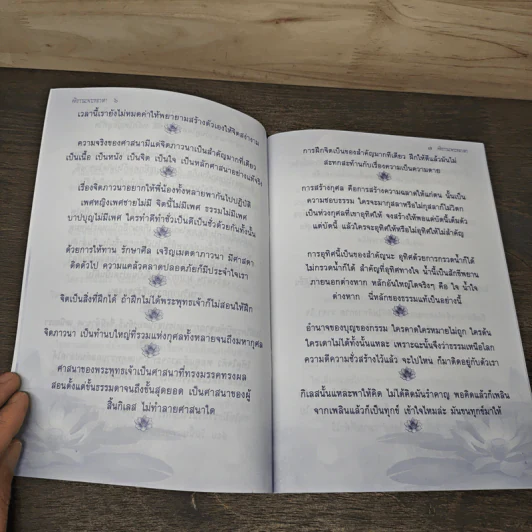 เวลานี้เรายังไม่หมดค่าให้พยายามสร้างตัวเองให้จิตสง่างาม
ความจริงของศาสนามีแต่จิตภาวนาเป็นสำคัญมากทีเดียว
เป็นเนื้อ เป็นหนัง เป็นจิต เป็นใจ เป็นหลักศาสนาอย่างแท้จริง
เรื่องจิตภาวนาอยากให้พี่น้องทั้งหลายพากันไปปฏิบัติ
เพศหญิงเพศชายไม่มี จิตนี้ไม่มีเพศ ธรรมไม่มีเพศ
บาปบุญไม่มีเพศ ใครทำดีทำชั่วเป็นดีเป็นชั่วด้วยกันทั้งนั้น
ด้วยการให้ทาน รักษาศีล เจริญเมตตาภาวนา มีศาสดา
ติดตัวไป ความแคล้วคลาดปลอดภัยก็มีประจำใจเรา
จิตเป็นสิ่งที่ฝึกได้ ถ้าฝึกไม่ได้พระพุทธเจ้าก็ไม่สอนให้ฝึก
จิตภาวนา เป็นทำนบใหญ่ที่รวมแห่งกุศลทั้งหลายจนถึงมหากุศล
ศาสนาของพระพุทธเจ้าเป็นศาสนาที่ทรงมรรคทรงผล
สอนตั้งแต่ขั้นธรรมดาจนถึงขั้นสุดยอด เป็นศาสนาของผู้
สิ้นกิเลส ไม่ทำลายศาสนาใด
การฝึกจิตเป็นของสำคัญมากทีเดียว ฝึกให้ดีแล้วมันไม่
สะทกสะท้านกับเรื่องความเป็นความตาย
การสร้างกุศล คือการสร้างความฉลาดให้แก่ตน นั้นเป็น
ความชอบธรรม ใครจะมากุสลาหรือไม่กุสลาก็ไม่วิตก
เป็นห่วงกุศลที่เขาอุทิศให้ จงสร้างให้พอแต่บัดนี้เต็มตัว
แต่บัดนี้ แล้วใครจะอุทิศให้หรือไม่อุทิศให้ไม่สำคัญ
การอุทิศนี้เป็นของสำคัญนะ อุทิศด้วยการกรวดน้ำก็ได้
ไม่กรวดน้ำก็ได้ สำคัญที่อุทิศทางใจ น้ำนี้เป็นสักขีพยาน
ภายนอกต่างหาก หลักอันใหญ่โตจริงๆ คือ ใจ น้ำใจ
ต่างหาก นี่หลักของธรรมแท้เป็นอย่างนี้
อำนาจของบุญของกรรม ใครคาดใครหมายไม่ถูก ใครด้น
ใครเดาไม่ได้ทั้งนั้นแหละ เพราะฉะนั้นจึงว่าธรรมเหนือโลก
ความดีความชั่วสร้างไว้แล้ว จะไปไหน ก็มาติดอยู่กับตัวเรา
กิเลสนั้นแหละพาให้คิด ไม่ได้คิดมันรำคาญ พอคิดแล้วก็เพลิน
จากเพลินแล้วก็เป็นทุกข์ เข้าใจไหมล่ะ มันขนทุกข์มาให้